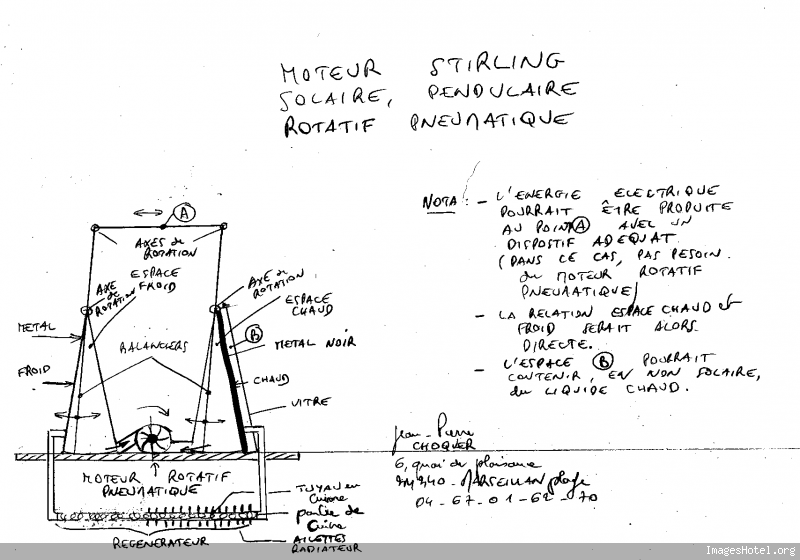 MOTEUR STIRLING
SOLAIRE, PENDULAIRE
ROTATIF PNEUMATIQUE
NOTA : - L'ENERGIE ELECTRIQUE
POURRAIT ÊTRE PRODUITE
AU POINT A AVEC UN
DISPOSTIF ADEQUAT
(DANS CE CAS, PAS BESOIN
du MOTEUR ROTATIF
PNEUMATIQUE)
- LA RELATION ESPACE CHAUD et
FROID SERAIT ALORS
DIRECTE.
- L'ESPACE B POURRAIT
CONTENIR, EN NON SOLAIRE,
du LIQUIDE CHAUD.
A
AXES de
ROTATION
ESPACE
FROID
AXE
de
ROTATION
AXE de
ROTATION
ESPACE
CHAUD
B
METAL
METAL NOIR
BALANCIERS
FROID
CHAUD
VITRE
Jean-Pierre
CHOQUER
6, quai de plaisance
MARSEILLAN plage
04-67-01-62-70
MOTEUR ROTATIF
PNEUMATIQUE
TUYAU en
Cuivre
de
Cuivre
AILETTES
RADIATEUR
REGENERATEUR
ImagesHotel.org